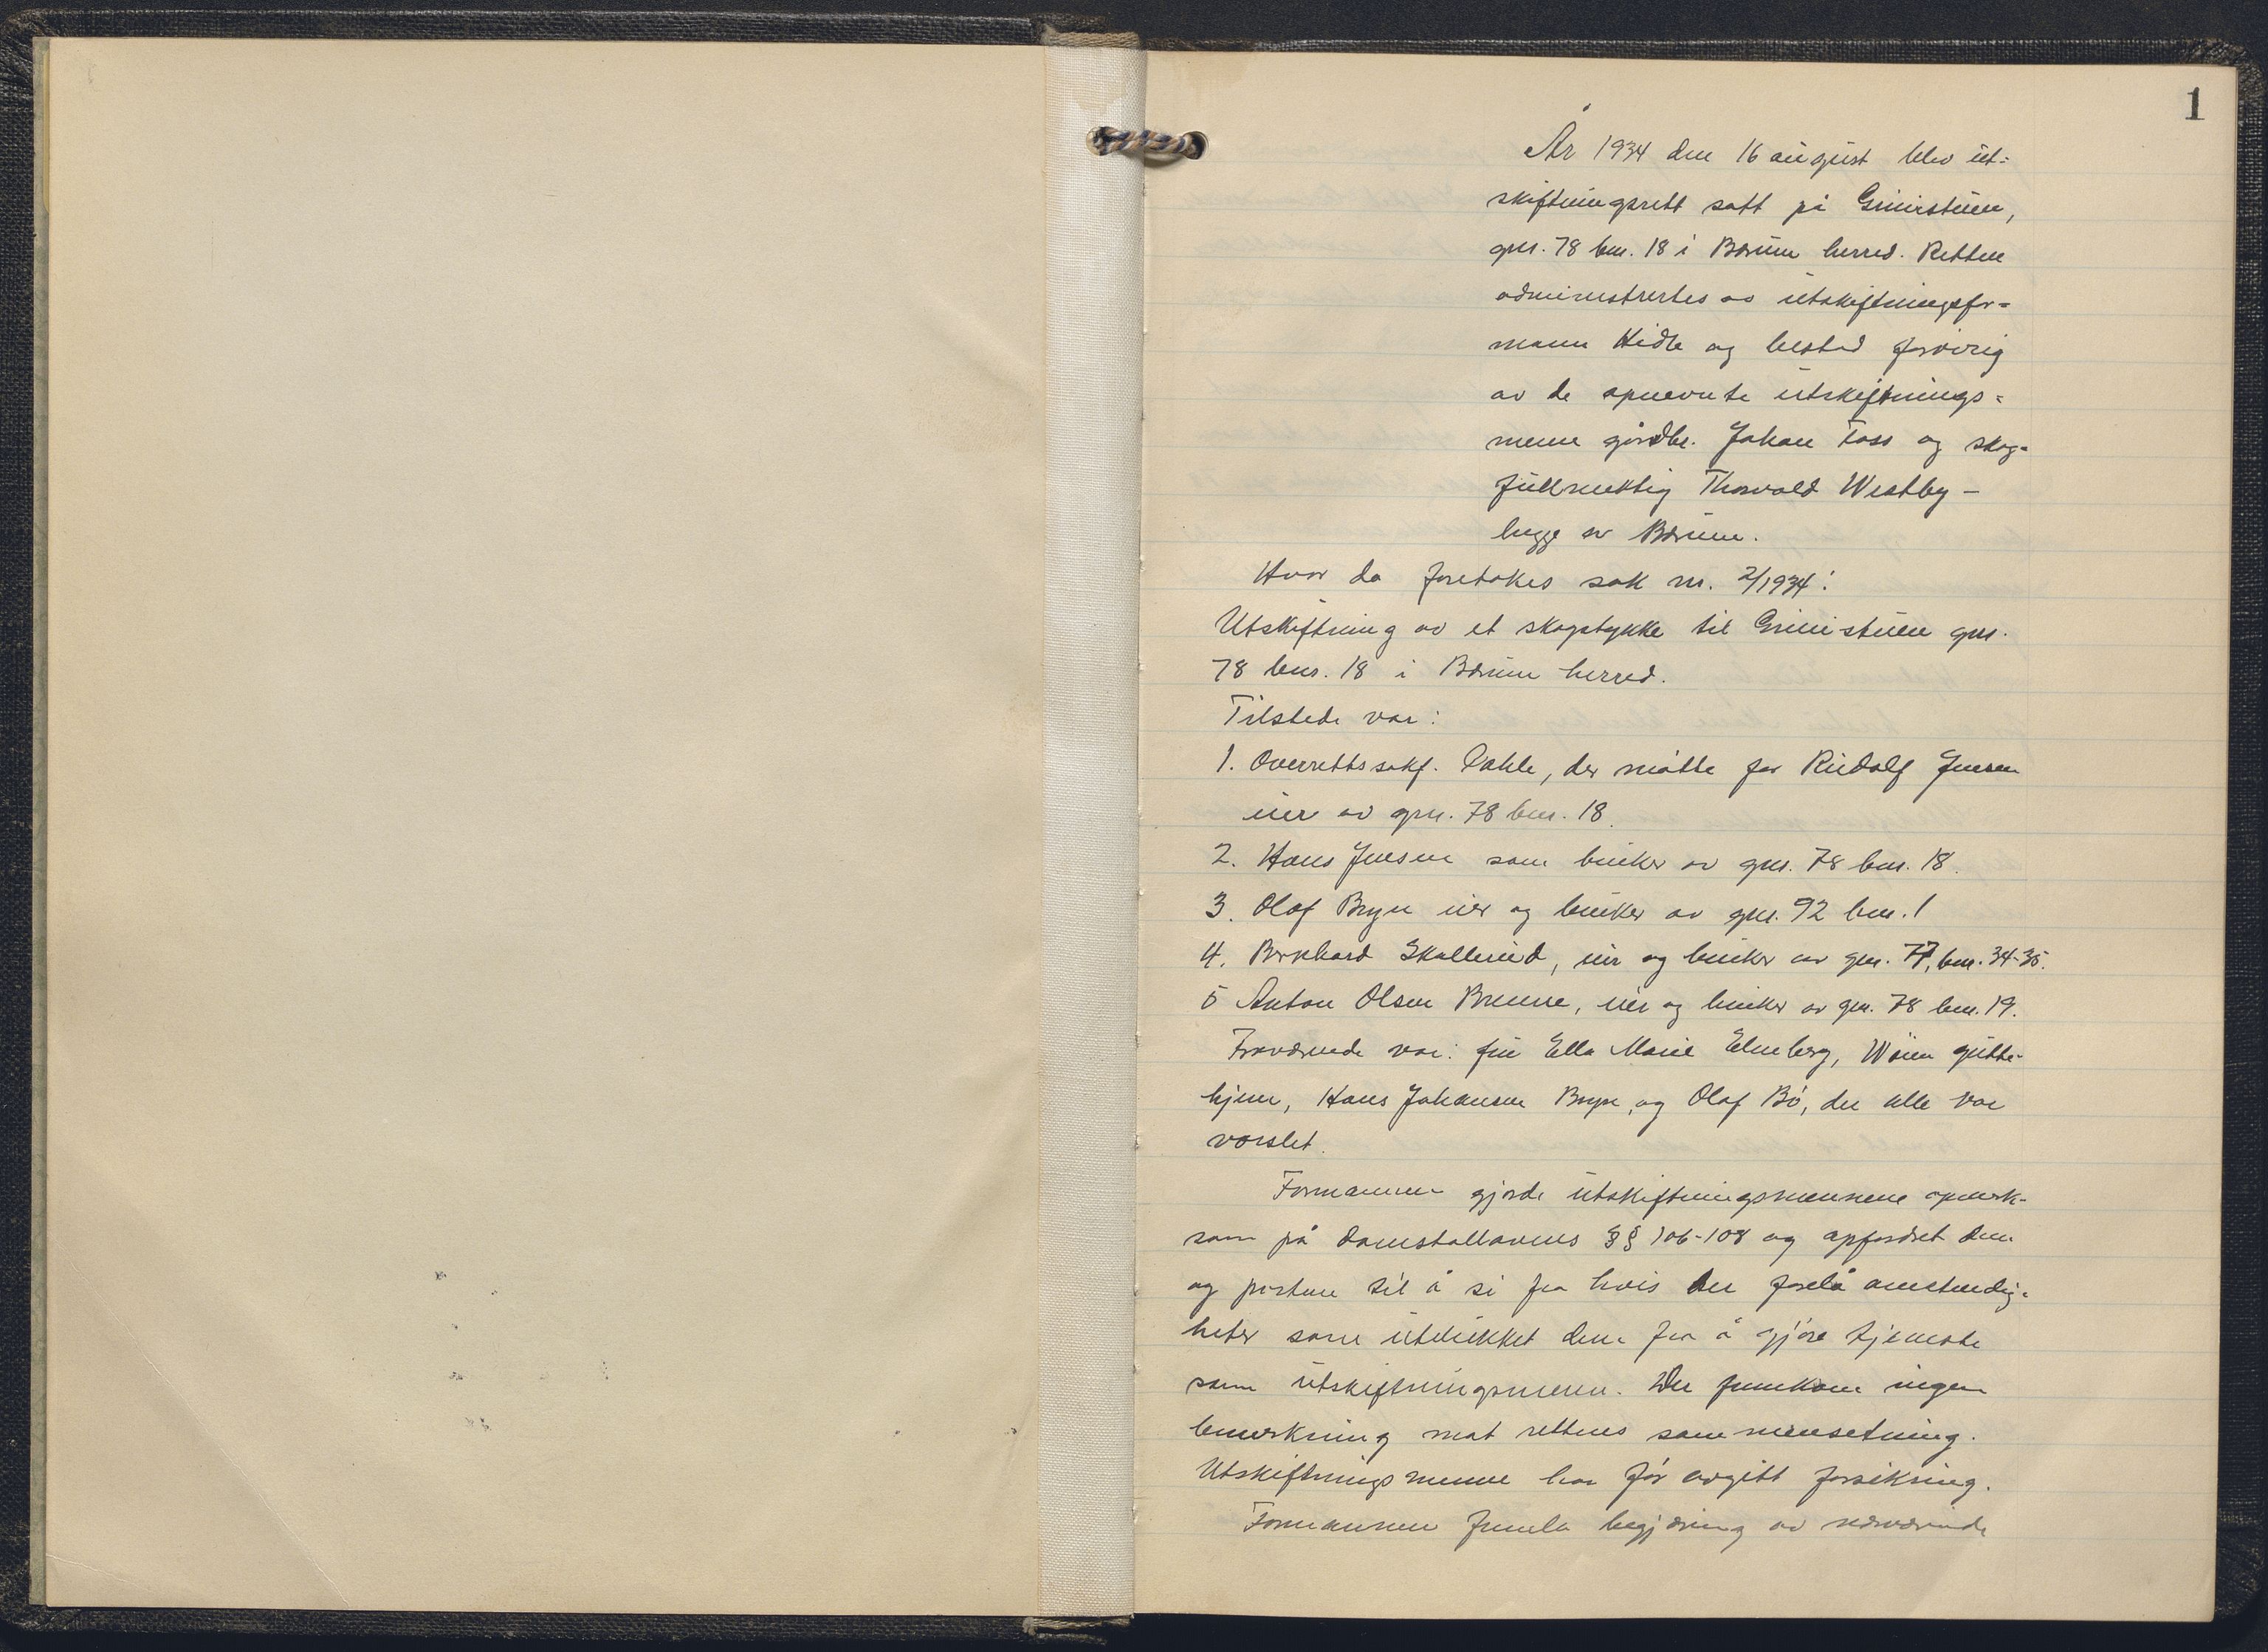 1
År 1934 den 16 august blev ut-
skiftningsrett satt på Grinistuen,
gnr. 78 bnr. 18 i Bærum herred. Retten
administrertes av utskiftningsfor-
mann Hidle og bestod forøvrig
av de opnevnte utskiftnings-
menn gårdbr. Johan Foss og skog-
fullmektig Thorvald Westby -
begge av Bærum.
Hvor da foretokes sak nr. 2/1934:
Utskiftning av et skogstykke til Grinistuen gnr.
78 bnr. 18 i Bærum herred.
Tilstede var:
1. Overrettssakf. Dahle, der møtte for Rudolf Jensen
eier av gnr. 78 bnr. 18.
2. Hans Jensen som bruker av gnr. 78 bnr. 18.
3. Olaf Bryn eier og bruker av gnr. 92 bnr. 1
4. Bernhard Skallerud, eier og bruker av gnr. 77, bnr. 34-35.
5 Anton Olsen Brenne, eier og bruker av gnr. 78 bnr. 19.
Fraværende var: fru Ella Marie Elneberg, Wøien gutte-
hjem, Hans Johansen Bryn, og Olaf Bø, der alle var
varslet.
Formannen gjorde utskiftningsmennene opmerk-
som på domstollovens §§ 106-108 og opfordret dem
og partene til å si fra hvis der forelå omstendig-
heter som utelukket dem fra å gjøre tjeneste
som utskiftningsmenn. Der fremkom ingen
bemerkning mot rettens sammensetning.
Utskiftningsmenne har før avgitt forsikring.
Formannen fremla begjæring av nærværende